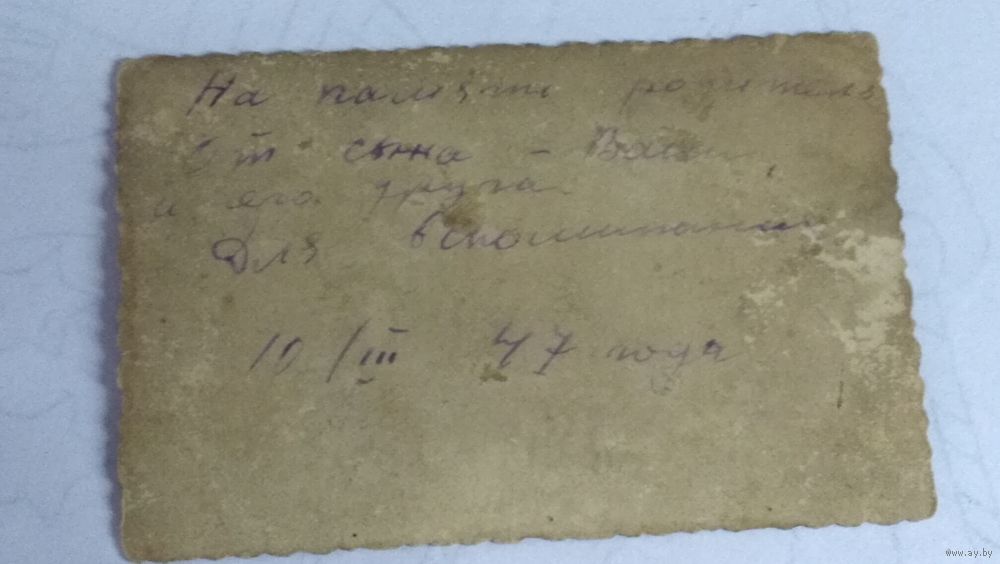 На память родителям
От сына - Васи
и его друга
Для вспоминания
10/III 47 года
www.ay.by